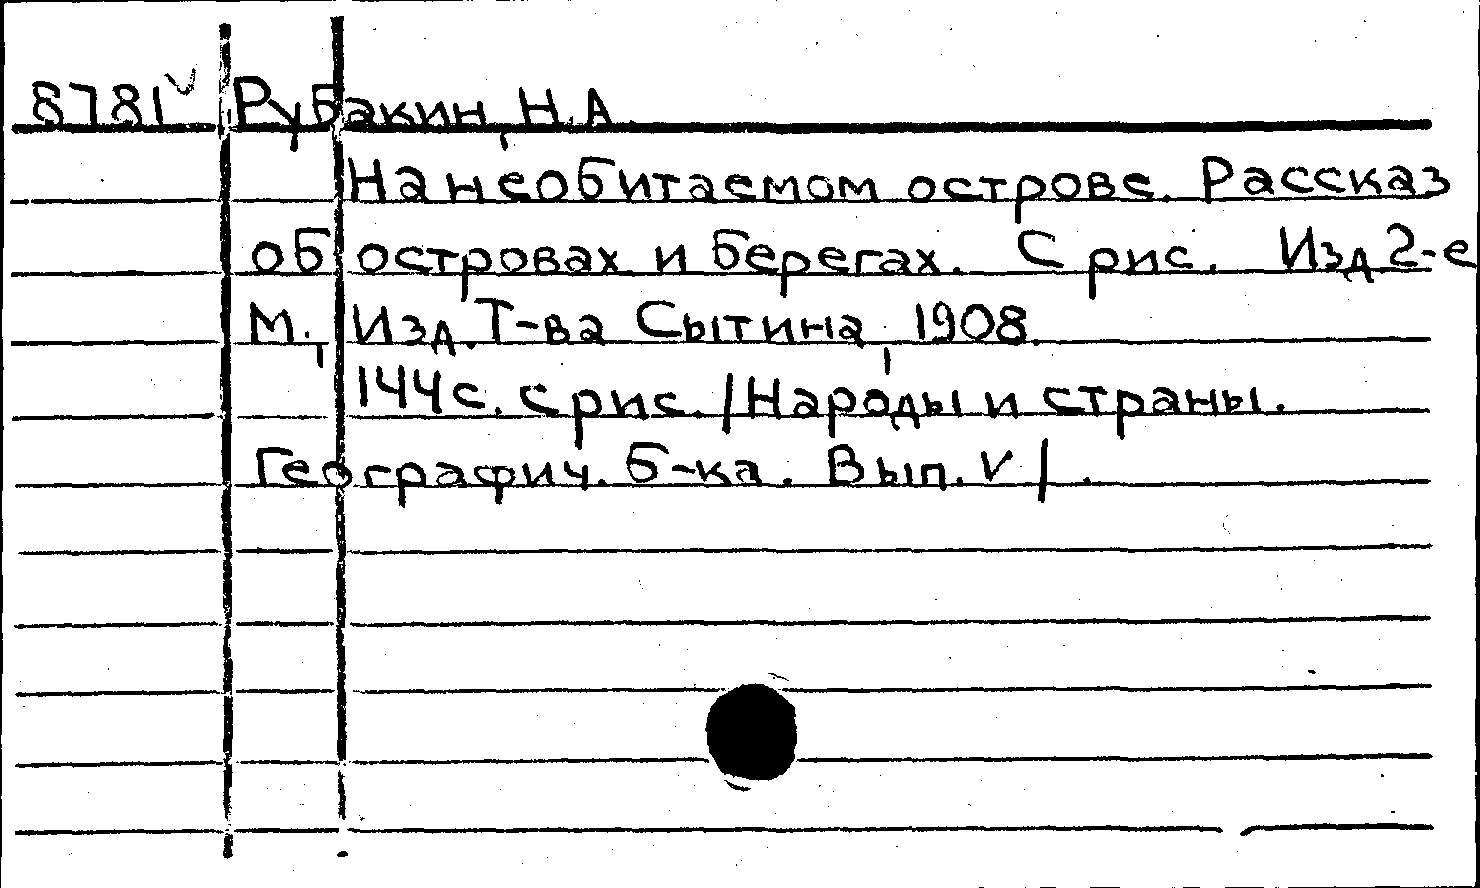 8781 Рубакин, Н.А.
На необитаемом острове. Рассказ
об островах и берегах. С рис. Изд 2-е
М., Изд. Т-ва Сытина, 1908.
144 с. с рис. /Народы и страны.
Географич. б-ка. Вып. V/.